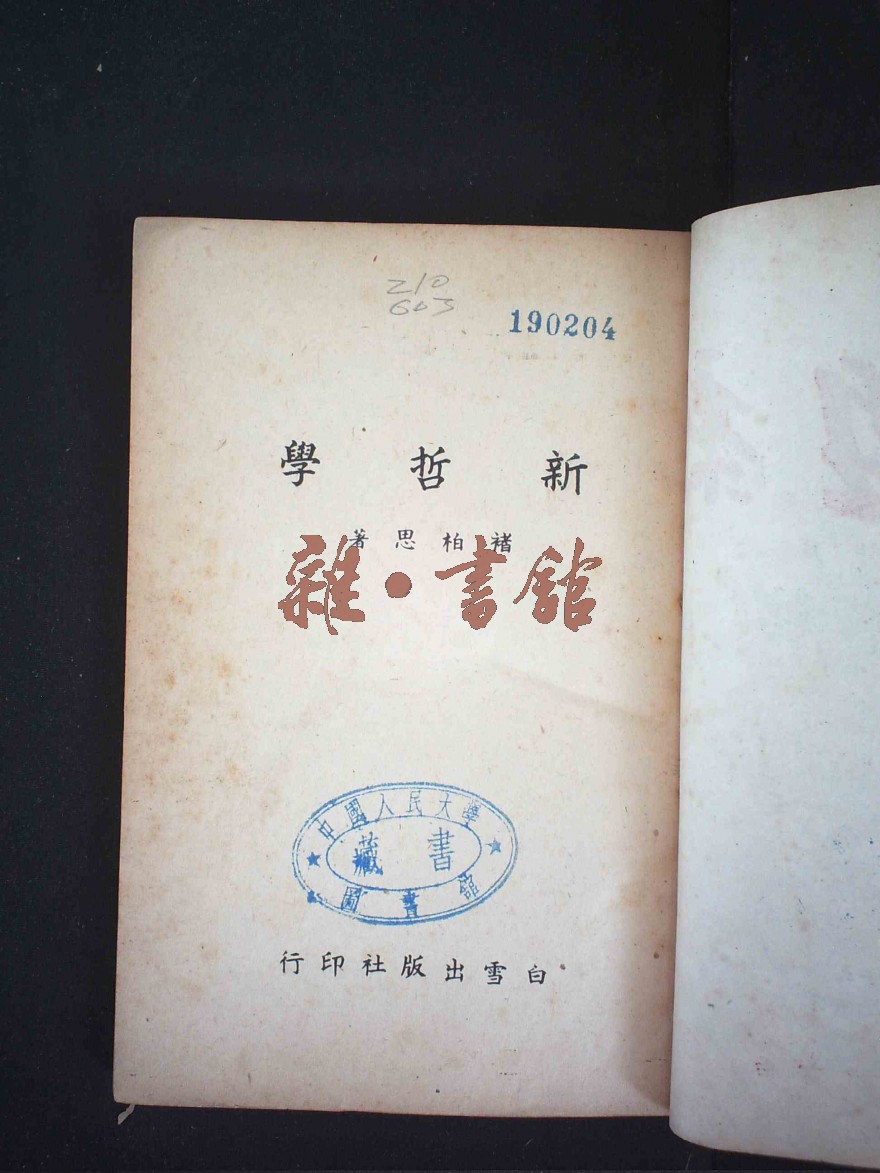 210
603
190204
新哲學
褚柏思著
雜·書館
中國人民大學
藏書
圖書館
白雪出版社印行